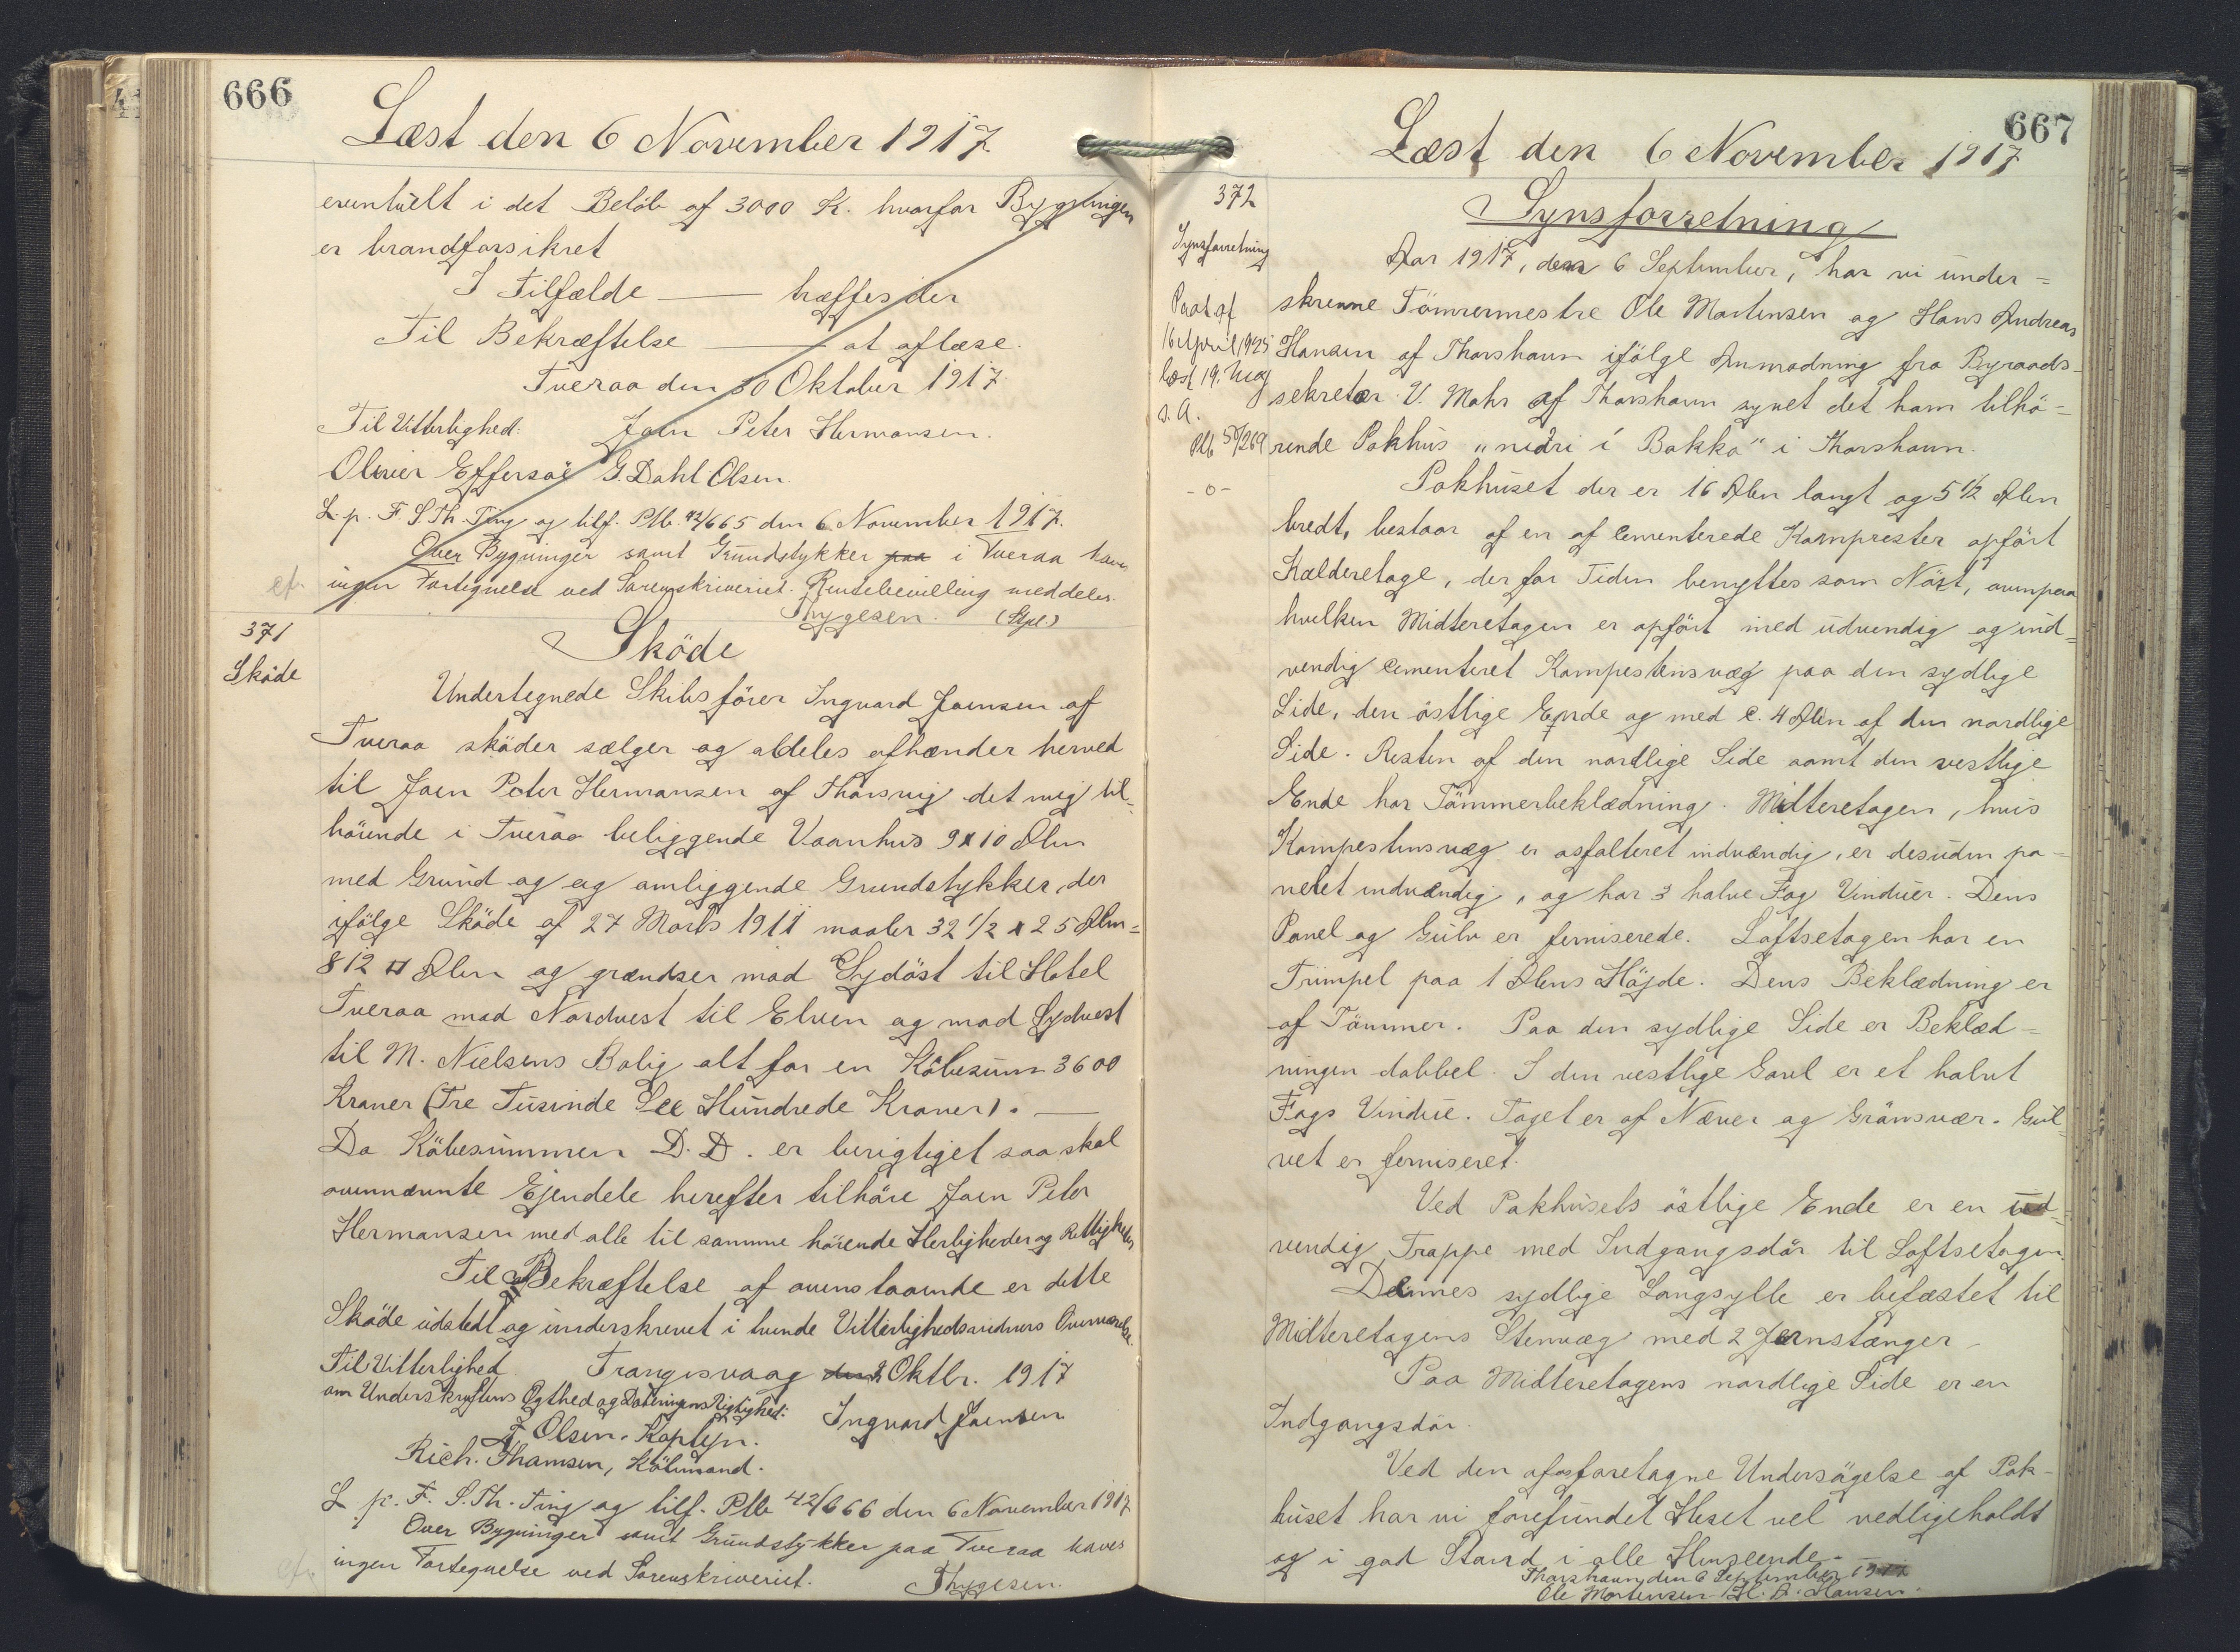 666
Læst den 6 November 1917
eventuelt i det Beløb af 3000 K. hvorfor Bygningen
er brandforsikret
I Tilfælde — træffes der
Til Bekræftelse — at aflæse.
Tveraa den 30 Oktober 1917
Til Vitterlighed: Joen Peter Hermansen.
Olivier Effersøe G. Dahl Olsen.
L. p. F. S. Th. Ting og tilf. Ptb. 42/665 den 6 November 1917.
Over Bygninger samt Grundstykker paa i Tveraa haves
cf. ingen Fortegnelse ved Sorenskriveriet. Rentebevilling meddeles.
Thygesen. (Stpl)
371
Sköde
Sköde
Undertegnede Skibsförer Ingvard Joensen af
Tveraa sköder sælger og aldeles afhænder herved
til Joen Peter Hermansen af Thorsvig det mig til-
hörende i Tveraa beliggende Vaanhus 9 x 10 Alen
med Grund og og omliggende Grundstykker, der
ifölge Sköde af 27 Marts 1911 maaler 32 1/2 x 25 Alen =
812 □ Alen og grændser mod Sydöst til Hotel
Tveraa mod Nordvest til Elven og mod Sydvest
til M. Nielsens Bolig alt for en Köbesum 3600
Kroner (Tre Tusinde Sex Hundrede Kroner). —
Da Köbesummen D. D. er berigtiget saa skal
ovennævnte Ejendele herefter tilhöre Joen Peter
Hermansen med alle til samme hörende Herligheder og Rettigheder
Til Bekræftelse af ovenstaaende er dette
Sköde udstedt og underskrevet i tvende Vitterlighedsvidners Overværelse.
Til Vitterlighed Trangisvaag den 2 Oktbr. 1917
om Underskriftens Ægthed og Dateringens Rigtighed: Ingvard Joensen
J. Olsen. Kaptejn.
Rich. Thomsen, Köbmand.
L. p. F. S. Th. Ting og tilf. Ptb 42/666 den 6 November 1917
Over Bygninger samt Grundstykker paa Tveraa haves
cf. ingen Fortegnelse ved Sorenskriveriet. Thygesen.
667
Læst den 6 November 1917
372
Synsforretning
Synsforretning
Paat. af
16 April 1925
læst 19. Maj
s. A.
Ptb 50/269
-o-
Aar 1917, den 6 September, har vi under=
skrevne Tömrermestre Ole Mortensen og Hans Andreas
Hansen af Thorshavn ifölge Anmodning fra Byraads-
sekretær V. Mohr af Thorshavn synet det ham tilhö=
rende Pakhus "nidri í Bakka" i Thorshavn.
Pakhuset der er 16 Alen langt og 5 1/2 Alen
bredt, bestaar af en af cementerede Kampester opfört
Kælderetage, der for Tiden benyttes som Nöst, ovenpaa
hvilken Midteretagen er opfört med udvendig og ind=
vendig cementeret Kampestensvæg paa den sydlige
Side, den östlige Ende og med c. 4 Alen af den nordlige
Side. Resten af den nordlige Side samt den vestlige
Ende har Tömmerbeklædning. Midteretagen, hvis
Kampestensvæg er asfalteret indvændig, er desuden pa-
nelet indvændig, og har 3 halve Fag Vinduer. Dens
Panel og Gulv er ferniserede. Loftsetagen har en
Trimpel paa 1 Alens Höjde. Dens Beklædning er
af Tömmer. Paa den sydlige Side er Beklæd=
ningen dobbel. I den vestlige Gavl er et halvt
Fags Vindue. Taget er af Næver og Grönsvær. Gul-
vet er ferniseret.
Ved Pakhusets östlige Ende er en ud=
vendig Trappe med Indgangsdör til Loftsetagen.
Dennes sydlige Langsylle er befæstet til
Midteretagens Stenvæg med 2 Jernstænger
Paa Midteretagens nordlige Side er en
Indgangsdör.
Ved den af os foretagne Undersögelse af Pak-
huset har vi forefundet Huset vel vedligeholdt
og i god Stand i alle Henseende. —
Thorshavn, den 6 September 1917
Ole Mortensen H. A. Hansen.